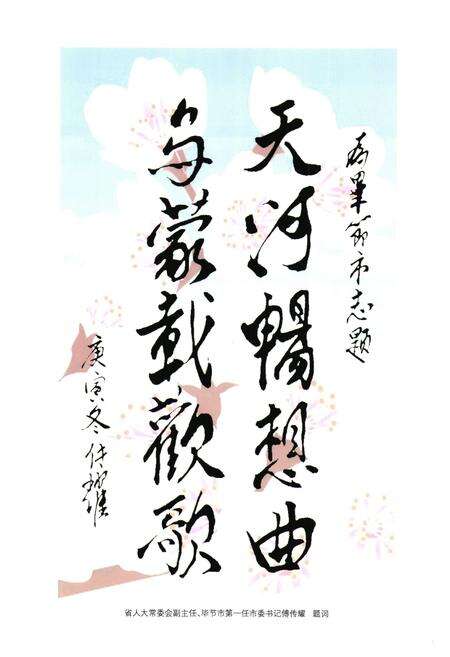 為畢節市志題
天河暢想曲
烏蒙載歡歌
庚寅冬传耀
省人大常委会副主任、毕节市第一任市委书记傅传耀　题词